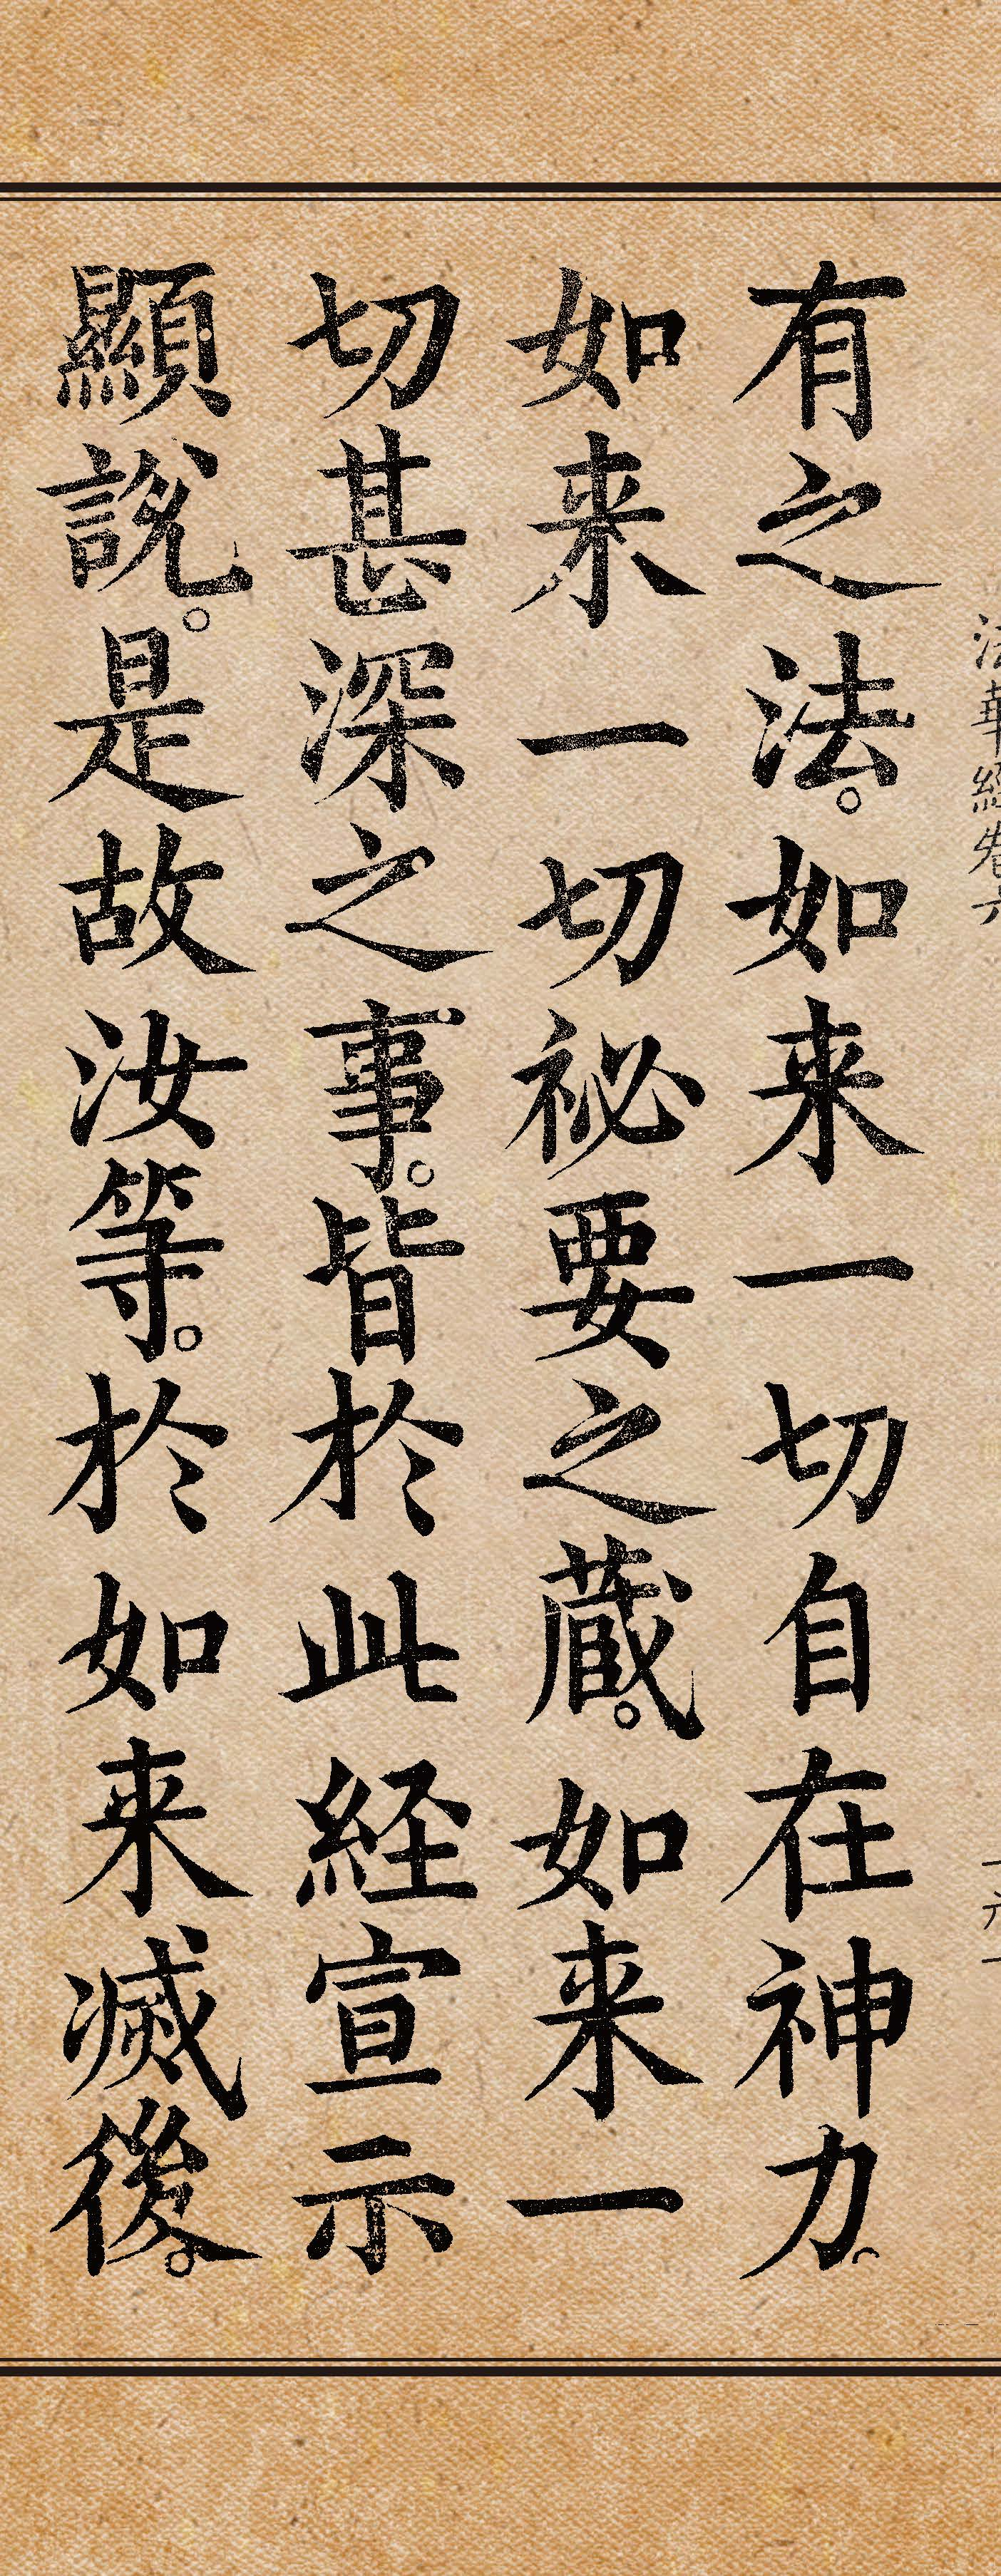 法華經卷六
有之法。如来一切自在神力。
如来一切祕要之蔵。如来一
切甚深之事。皆於此経宣示
顯說。是故汝等。於如来滅後。